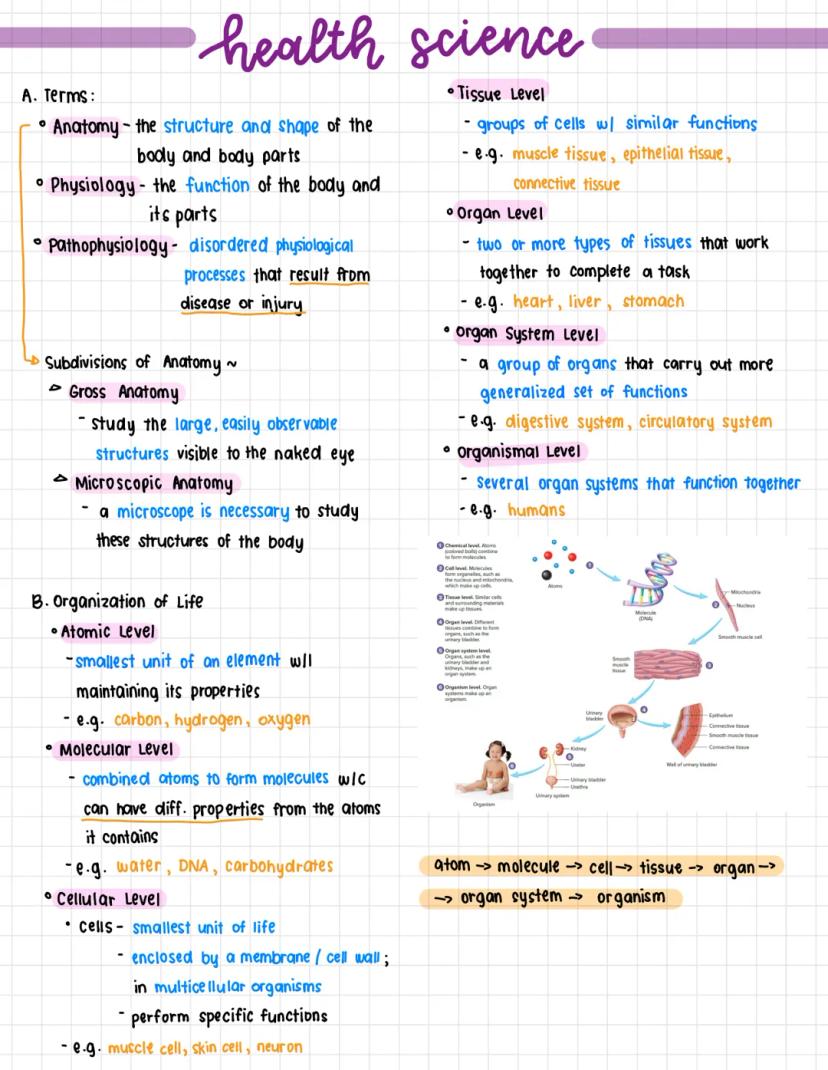 health science
A. Terms:
• Anatomy - the structure and shape of the
body and body parts
• Physiology - the function of the body and
its parts
• Pathophysiology - disordered physiological
processes that result from
disease or injury
Subdivisions of Anatomy ~
Gross Anatomy
- study the large, easily observable
structures visible to the naked eye
Microscopic Anatomy
- a microscope is necessary to study
these structures of the body
B. Organization of Life
• Atomic Level
- smallest unit of an element w/l
maintaining its properties
- e.g. carbon, hydrogen, oxygen
• Molecular Level
- combined atoms to form molecules w/c
can have diff. properties from the atoms
it contains
- e.g. water, DNA, carbohydrates
• Cellular Level
• Cells - smallest unit of life
- enclosed by a membrane / cell wall;
in multicellular organisms
- perform specific functions
- e.g. muscle cell, skin cell, neuron
• Tissue Level
- groups of cells w/ similar functions
- e.g. muscle tissue, epithelial tissue,
connective tissue
• Organ Level
- two or more types of tissues that work
together to complete a task
- e.g. heart, liver, stomach
• Organ System Level
- a group of organs that carry out more
generalized set of functions
- e.g. digestive system, circulatory system
• Organismal Level
- several organ systems that function together
- e.g. humans
1 Chemical level. Atoms
(colored balls) combine
to form molecules.
2 Cell level. Molecules
form organelles, such as
the nucleus and mitochondria,
which make up cells.
3 Tissue level. Similar cells
and surrounding materials
make up tissues.
4 Organ level. Different
tissues combine to form
organs, such as the
urinary bladder.
5 Organ system level.
Organs, such as the
urinary bladder and
kidneys, make up an
organ system.
6 Organism level. Organ
systems make up an
organism.
Atoms
1
Molecule
(DNA)
2
Mitochondria
Nucleus
Smooth muscle cell
Smooth
muscle
tissue
3
Urinary
bladder
4
Epithelium
Connective tissue
Smooth muscle tissue
Connective tissue
Wall of urinary bladder
Kidney
5
Ureter
Urinary bladder
Urethra
Urinary system
6
Organism
atom → molecule → cell → tissue → organ →
→ organ system → organism